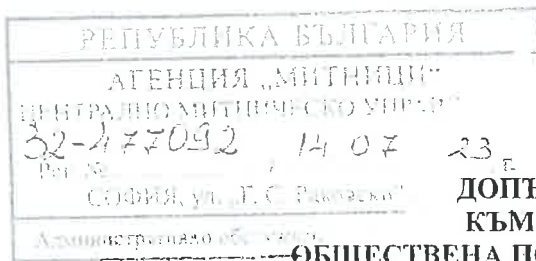 РЕПУБЛИКА БЪЛГАРИЯ
АГЕНЦИЯ „МИТНИЦИ“
ЦЕНТРАЛНО МИТНИЧЕСКО
32-477092 14 07 23 г.
Рег. №
СОФИЯ, ул. „Г. С. Раковски“
ДОПЪ
КЪМ
Административно
ОБЩЕСТВЕНА ПО